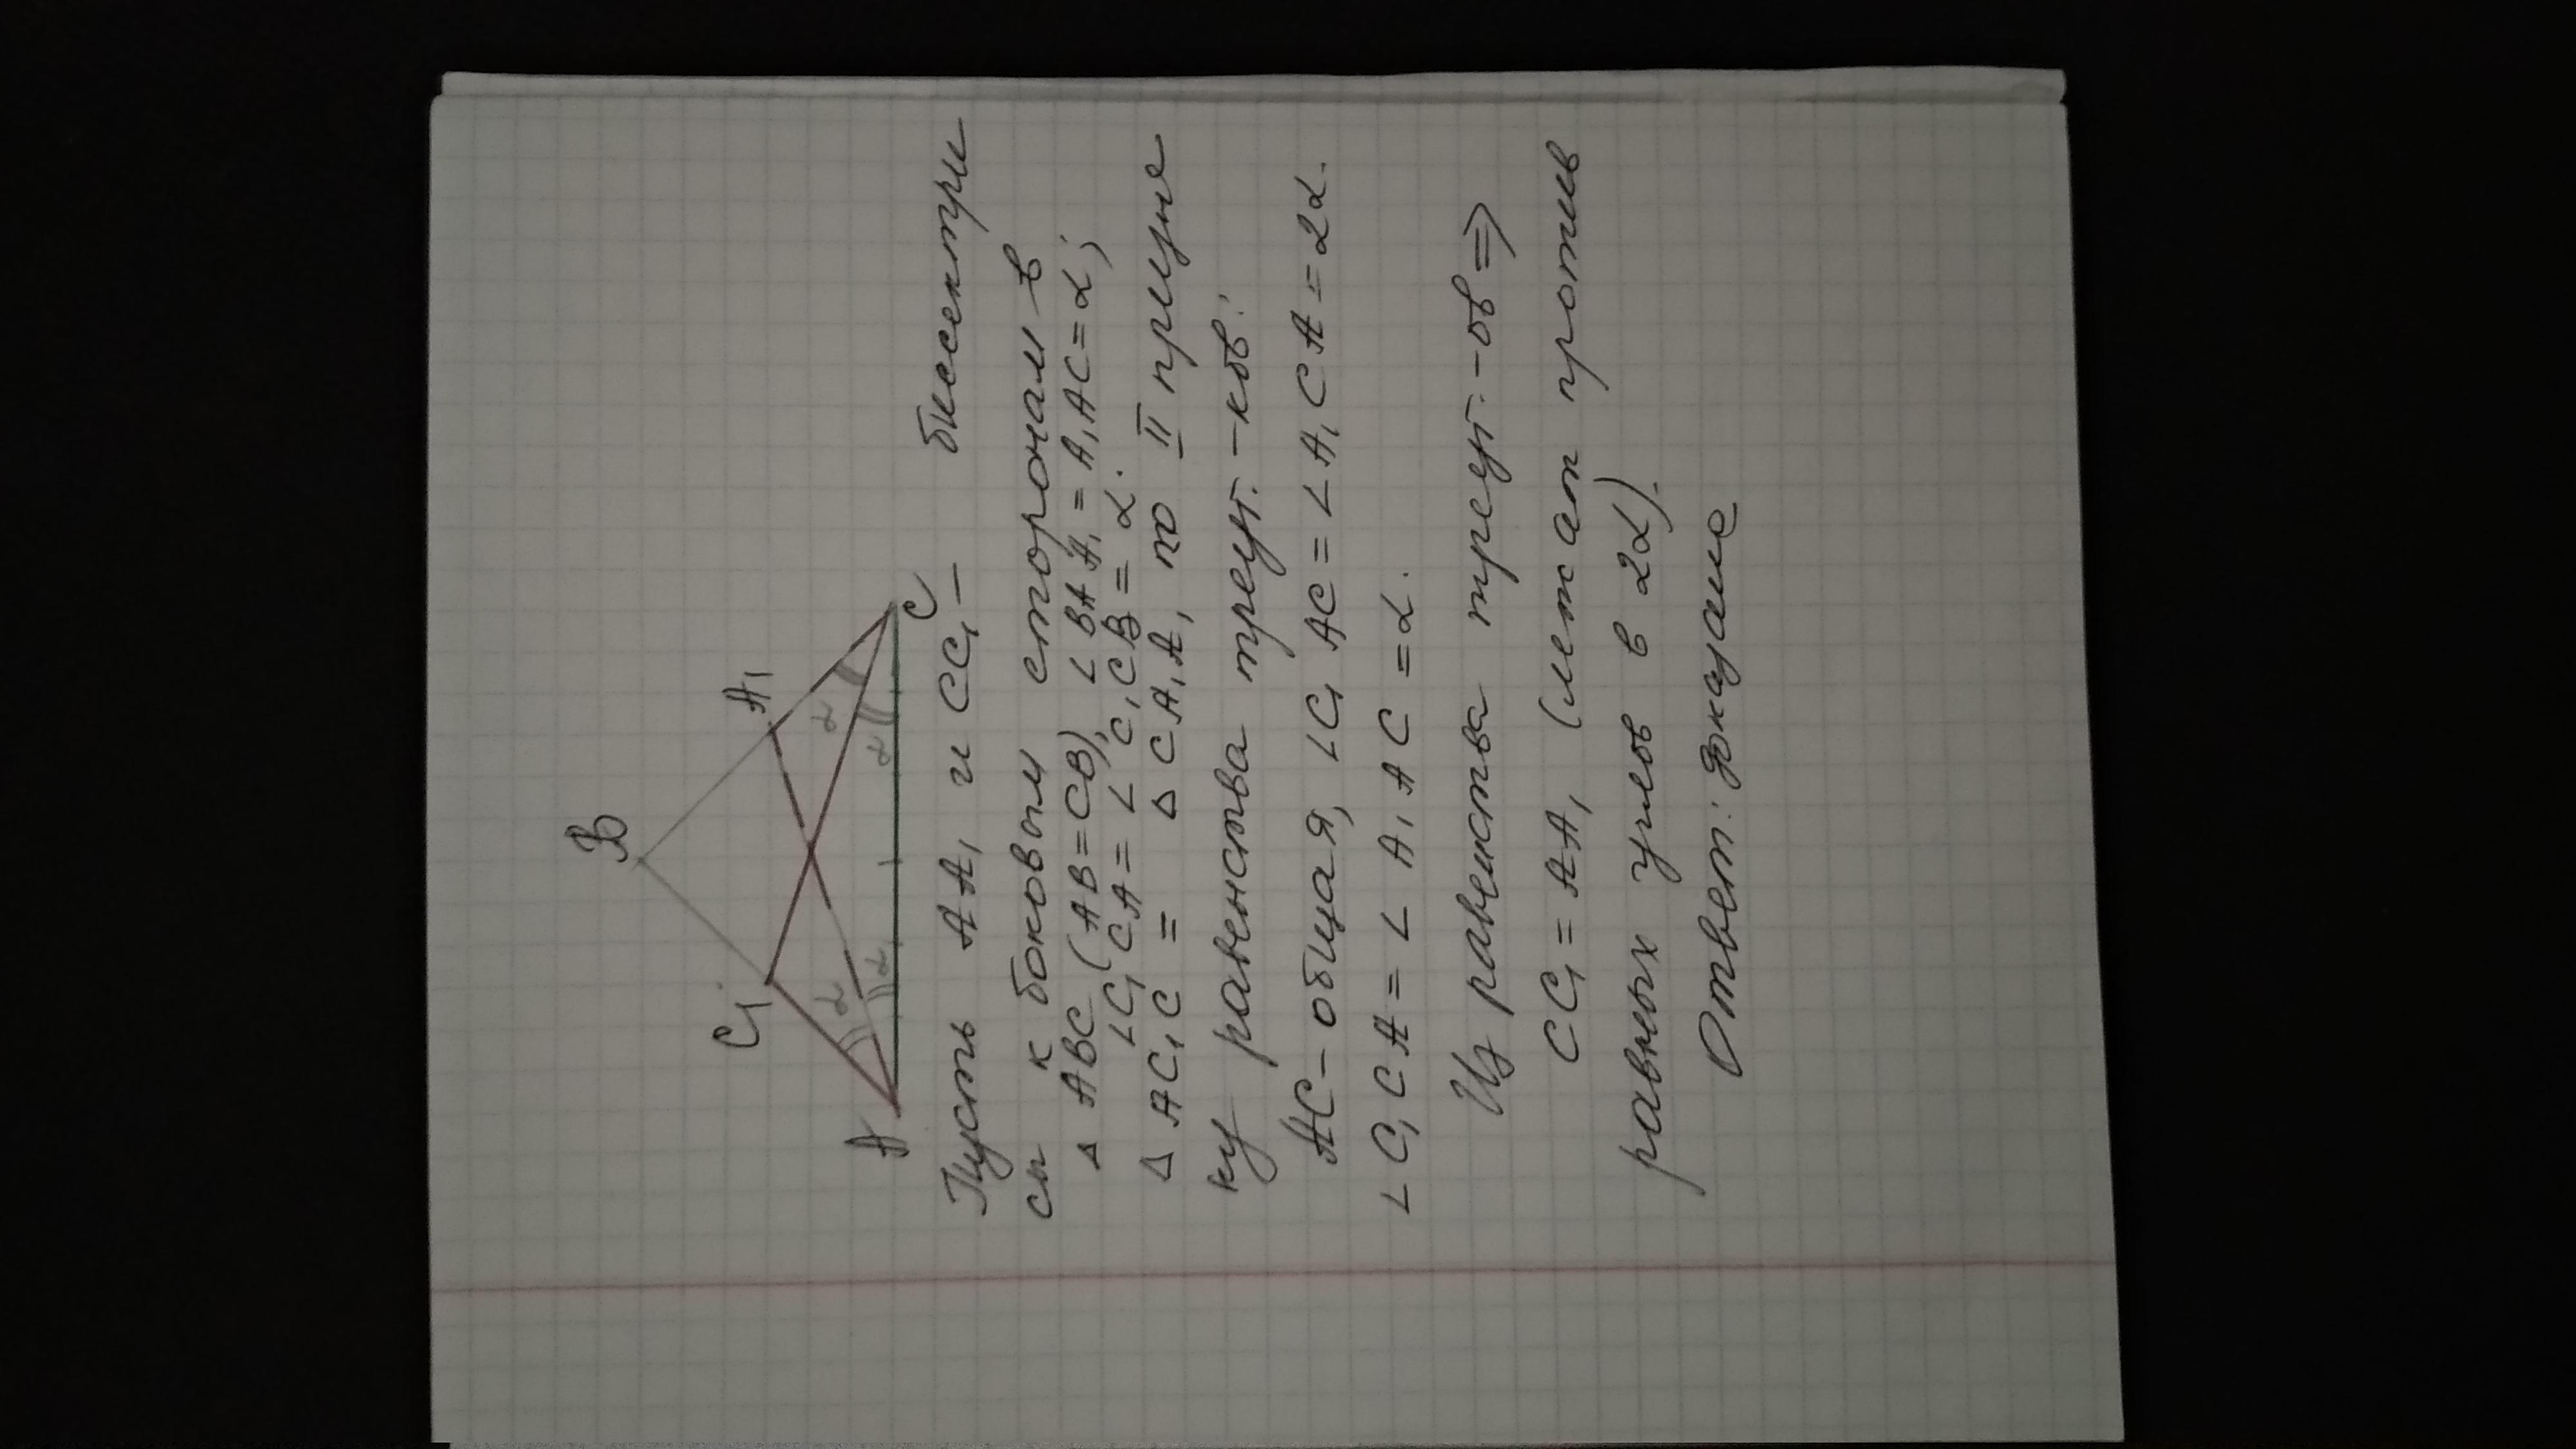 B
C₁
A₁
α
α
α
α
A
C
Пусть AA₁ и CC₁ – биссектри
сы к боковым сторонам в
△ ABC (AB=CB), ∠BAA₁ = A₁AC=α;
∠C₁CA = ∠C₁CB = α.
△ AC₁C = △ CA₁A, по II призна
ку равенства треуг.-ков:
AC – общая, ∠C₁AC = ∠A₁CA = 2α.
∠C₁CA = ∠A₁AC = α.
Из равенства треуг.-ов ⇒
CC₁ = AA₁ (лежат против
равных углов в 2α).
Ответ: доказание